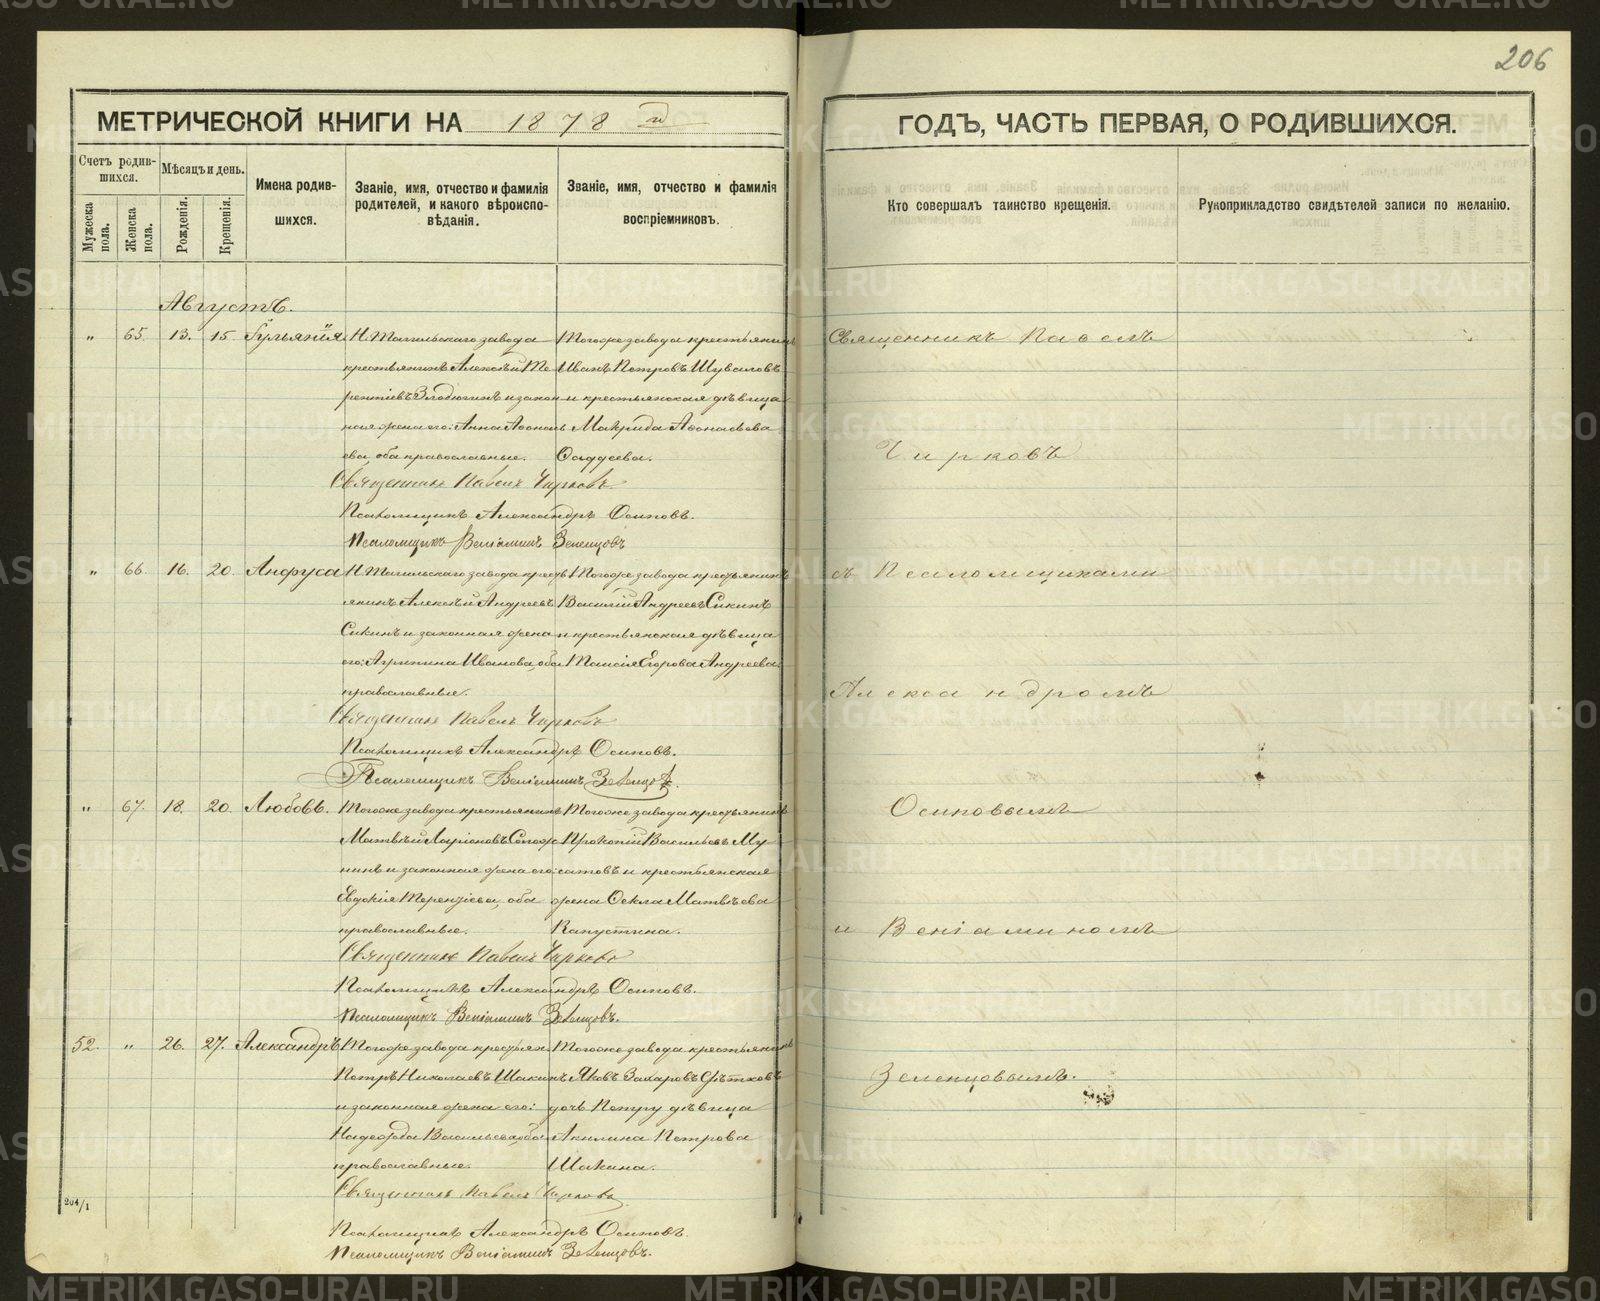 206
МЕТРИЧЕСКОЙ КНИГИ НА 1878 й
ГОДЪ, ЧАСТЬ ПЕРВАЯ, О РОДИВШИХСЯ.
Счетъ родившихся.
Мужеска пола.
Женска пола.
Мѣсяцъ и день.
Рожденія.
Крещенія.
Имена родившихся.
Званіе, имя, отчество и фамилія родителей, и какого вѣроисповѣданія.
Званіе, имя, отчество и фамилія воспріемниковъ.
Кто совершалъ таинство крещенія.
Рукоприкладство свидѣтелей записи по желанію.
Августъ.
„ 65. 13. 15
Н. Тагильскаго завода
крестьянинъ Алексѣй Те
рентіевъ и закон
ная жена его: Анна Афонась
ева оба православные.
Тогоже завода крестьянинъ
Иванъ Петровъ Шуваловъ
и крестьянская дѣвица
Макрида Афонасьева
Фаддеева.
Священникъ Павелъ Чирковъ
Псаломщикъ Александръ Осиповъ.
Псаломщикъ Веніаминъ Зеленцовъ
„ 66. 16. 20. Анфуса
Н. Тагильскаго завода кресть
янинъ Алексѣй Андреевъ
Сикинъ и законная жена
его: Агрипина Иванова, оба
православные.
Тогоже завода крестьянинъ
Василій Андреевъ Сикинъ
и крестьянская дѣвица
Таисія Егорова Андреева.
Священникъ Павелъ Чирковъ
Псаломщикъ Александръ Осиповъ.
Псаломщикъ Веніаминъ Зеленцовъ.
„ 67. 18. 20. Любовь.
Тогоже завода крестьянинъ
Матвѣй Ларіоновъ Сапож
нинъ и законная жена его:
Евдокія Терентіева, оба
православные.
Тогоже завода крестьянинъ
Прокопій Васильевъ Му
сатовъ и крестьянская
жена Фекла Матвѣева
Капустина.
Священникъ Павелъ Чирковъ
Псаломщикъ Александръ Осиповъ.
Псаломщикъ Веніаминъ Зеленцовъ.
52. „ 26. 27. Александръ
Тогоже завода крестьян.
Петръ Николаевъ Шакинъ
и законная жена его:
Надежда Васильева, оба
православные.
Тогоже завода крестьянинъ
Яковъ Захаровъ
дочь Петру дѣвица
Акилина Петрова
Шакина.
Священникъ Павелъ Чирковъ
Псаломщикъ Александръ Осиповъ.
Псаломщикъ Веніаминъ Зеленцовъ.
204/1
Священникъ Павелъ
Чирковъ
съ Псаломщиками
Александромъ
Осиповымъ
и Веніаминомъ
Зеленцовымъ.
METRIKI.GASO-URAL.RU